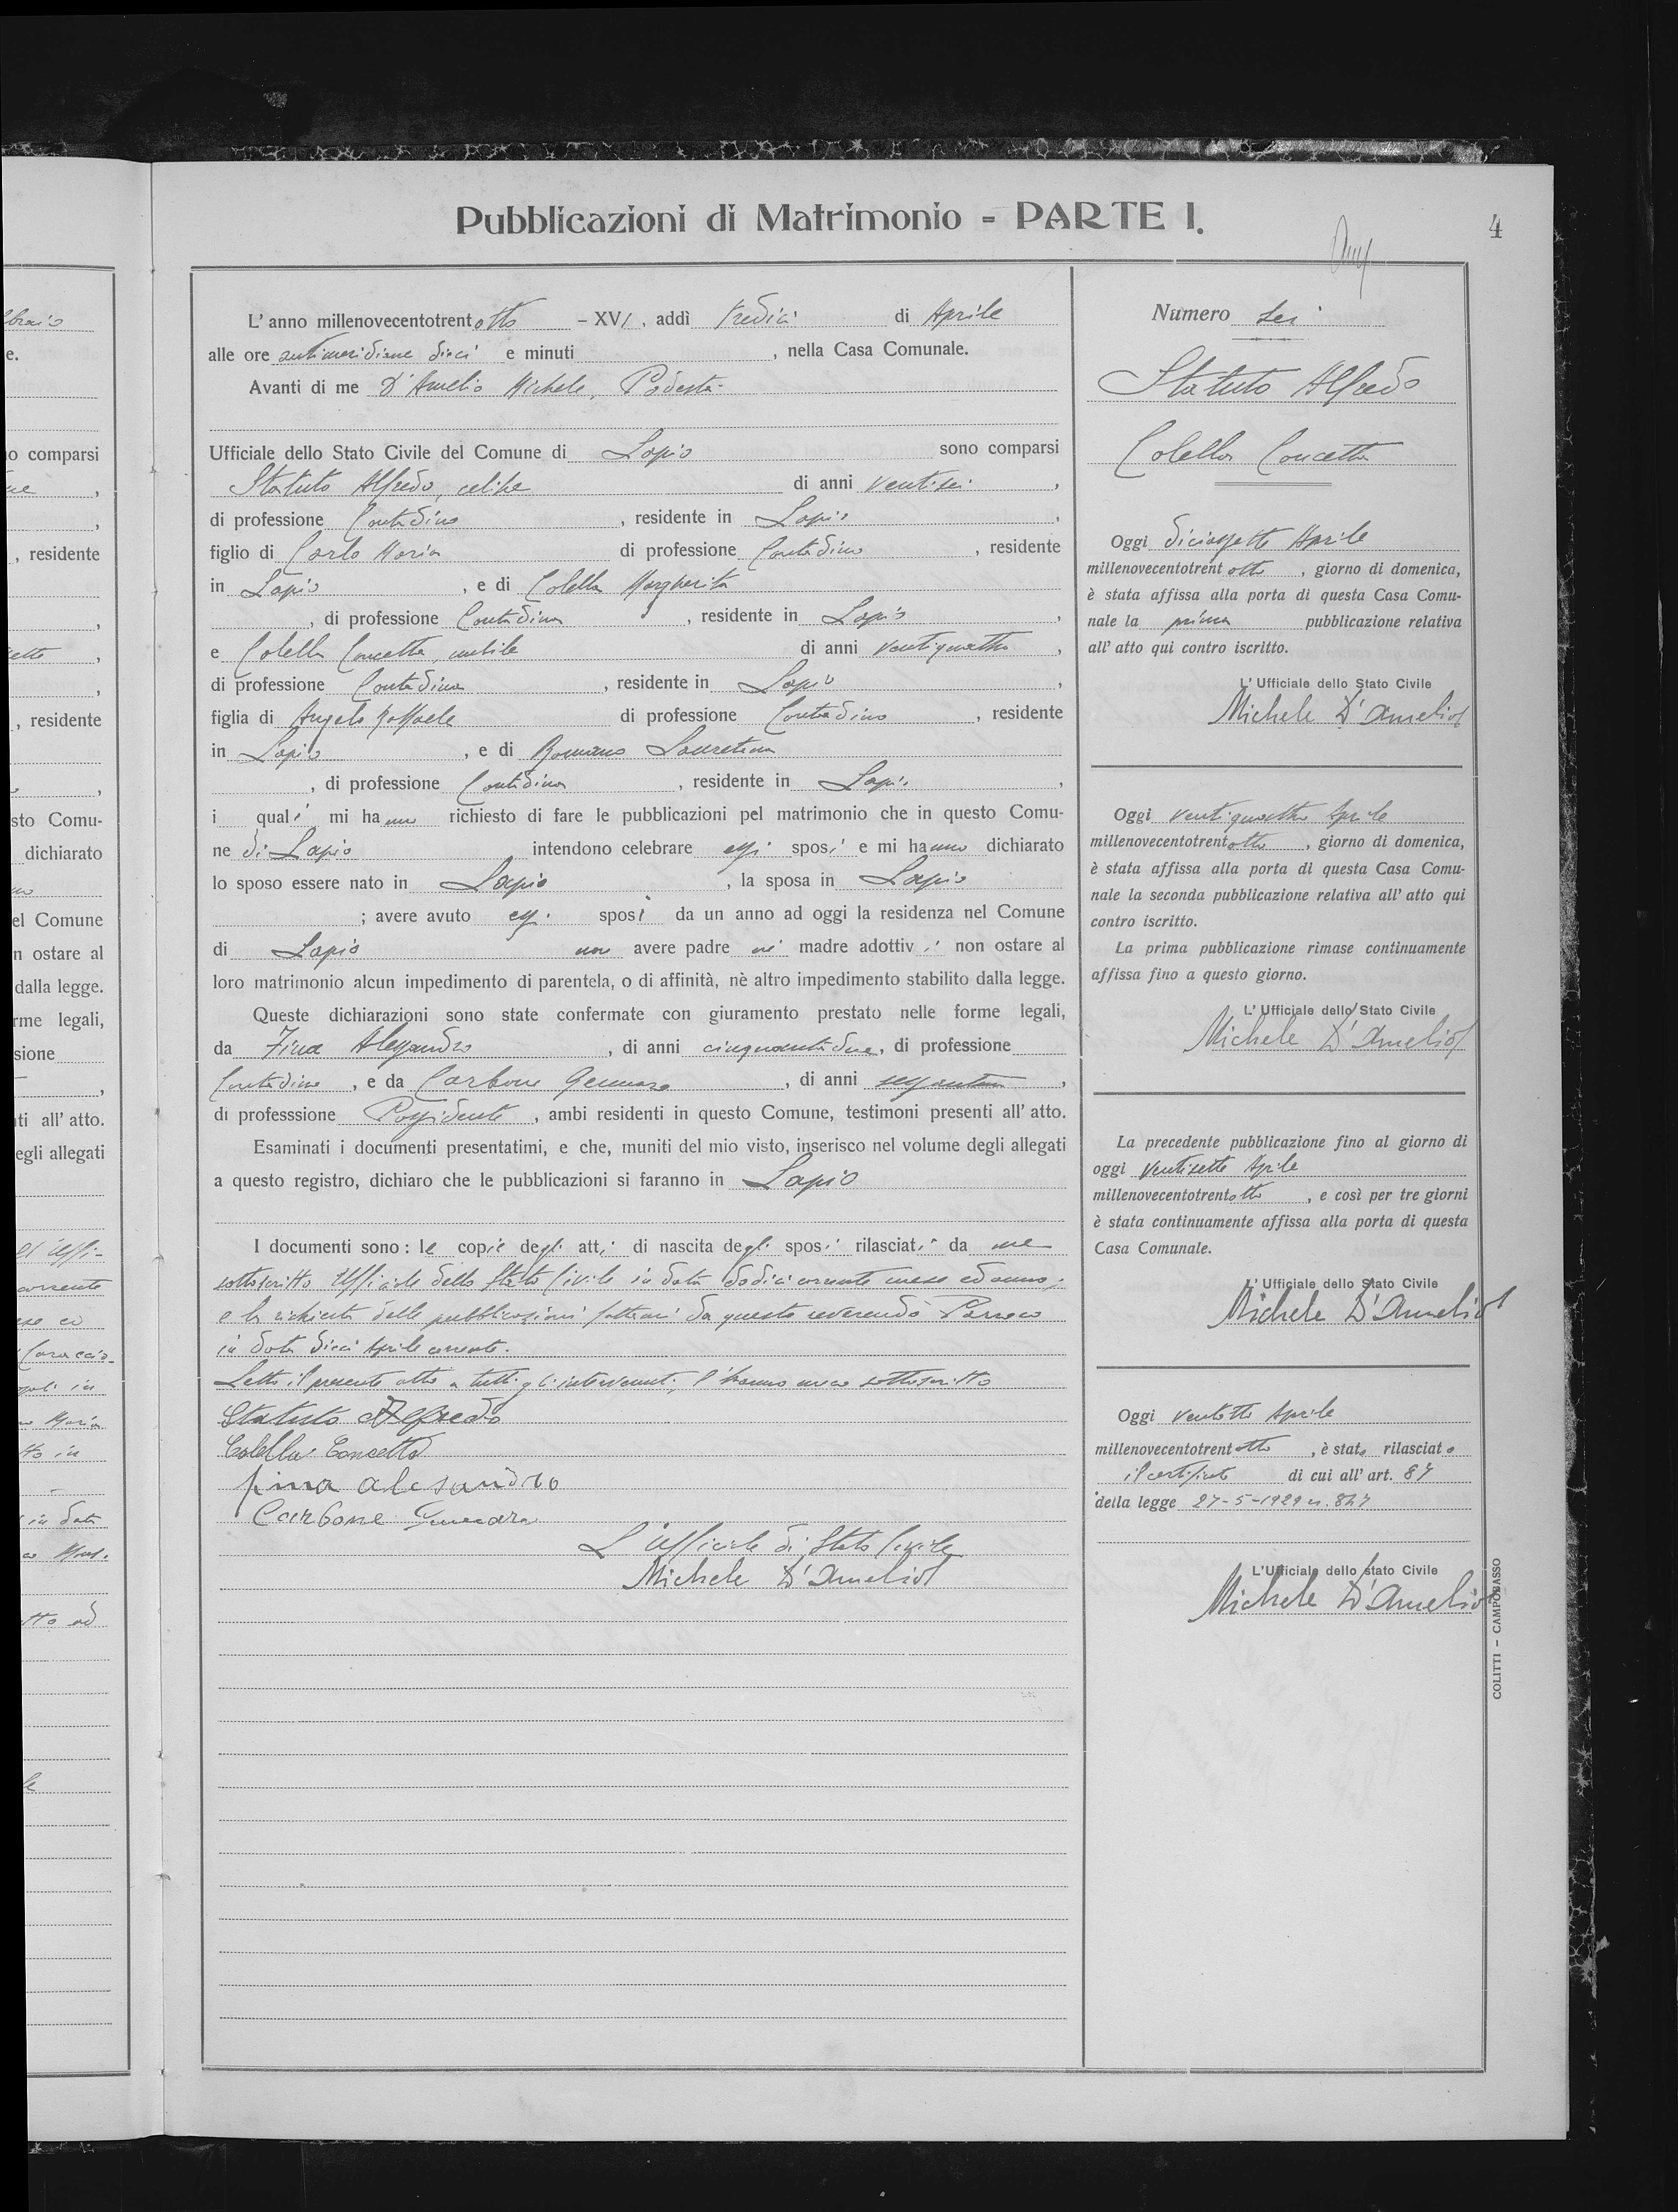 Pubblicazioni di Matrimonio - PARTE I.
4
L' anno millenovecentotrentotto - XVI, addì tredici di Aprile
alle ore antimeridiane dieci e minuti , nella Casa Comunale.
Avanti di me D'Amelio Michele, Podestà
Ufficiale dello Stato Civile del Comune di Lapio sono comparsi
Statuto Alfredo, celibe di anni ventisei ,
di professione Contadino , residente in Lapio ,
figlio di Carlo Maria di professione Contadino , residente
in Lapio , e di Colella Margherita
, di professione Contadina , residente in Lapio ,
e Colella Concetta, nubile di anni ventiquattro ,
di professione Contadina , residente in Lapio ,
figlia di Angelo Raffaele di professione Contadino , residente
in Lapio , e di Romano Lauretana
, di professione Contadina , residente in Lapio ,
i quali mi hanno richiesto di fare le pubblicazioni pel matrimonio che in questo Comu-
ne di Lapio intendono celebrare essi sposi e mi hanno dichiarato
lo sposo essere nato in Lapio , la sposa in Lapio
; avere avuto essi sposi da un anno ad oggi la residenza nel Comune
di Lapio non avere padre nè madre adottivi non ostare al
loro matrimonio alcun impedimento di parentela, o di affinità, nè altro impedimento stabilito dalla legge.
Queste dichiarazioni sono state confermate con giuramento prestato nelle forme legali,
da Fina Alessandro , di anni cinquantadue, di professione
Contadino , e da Carbone Gennaro , di anni sessantuno ,
di professsione Possidente , ambi residenti in questo Comune, testimoni presenti all' atto.
Esaminati i documenti presentatimi, e che, muniti del mio visto, inserisco nel volume degli allegati
a questo registro, dichiaro che le pubblicazioni si faranno in Lapio
I documenti sono : le copie degli atti di nascita degli sposi rilasciati da me
sottoscritto Ufficiale dello Stato Civile in data dodici corrente mese ed anno;
e la richiesta delle pubblicazioni fattami da questo reverendo Parroco
in data dieci Aprile corrente.
Letto il presente atto a tutti gli intervenuti, l'hanno meco sottoscritto
Statuto Alfredo
Colella Concetta
fina alesandro
Carbone Gennaro
L'Ufficiale di Stato Civile
Michele D'Amelio
Numero sei
Statuto Alfredo
Colella Concetta
Oggi diciassette Aprile
millenovecentotrentotto , giorno di domenica,
è stata affissa alla porta di questa Casa Comu-
nale la prima pubblicazione relativa
all' atto qui contro iscritto.
L' Ufficiale dello Stato Civile
Michele D'Amelio
Oggi ventiquattro Aprile
millenovecentotrentotto , giorno di domenica,
è stata affissa alla porta di questa Casa Comu-
nale la seconda pubblicazione relativa all' atto qui
contro iscritto.
La prima pubblicazione rimase continuamente
affissa fino a questo giorno.
L' Ufficiale dello Stato Civile
Michele D'Amelio
La precedente pubblicazione fino al giorno di
oggi ventisette Aprile
millenovecentotrentotto , e così per tre giorni
è stata continuamente affissa alla porta di questa
Casa Comunale.
L' Ufficiale dello Stato Civile
Michele D'Amelio
Oggi ventotto Aprile
millenovecentotrentotto , è stato rilasciato
il certificato di cui all' art. 87
della legge 27-5-1929 n. 847
L'Ufficiale dello Stato Civile
Michele D'Amelio
COLITTI - CAMPOBASSO
braio
e.
o comparsi
, residente
, residente
sto Comu-
dichiarato
el Comune
n ostare al
dalla legge.
rme legali,
sione
ti all' atto.
egli allegati
corrente
in data